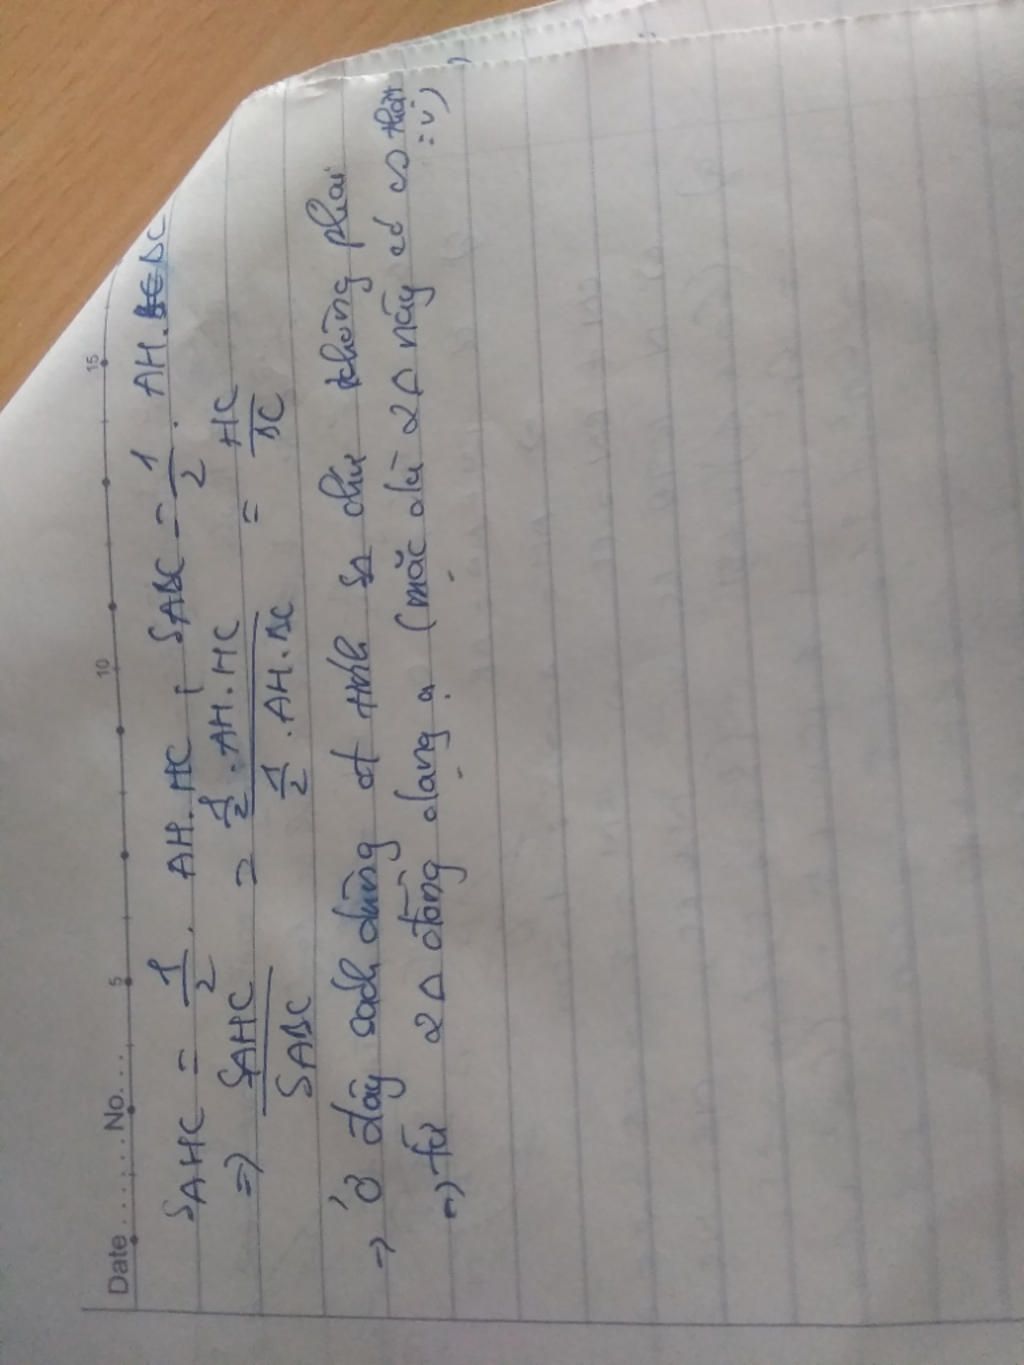 Date ....... No. ...
5 10 15
SAHC = 1/2 . AH.HC ; SABC = 1/2 . AH.BC
=> SAHC/SABC = (1/2 . AH.HC)/(1/2 . AH.BC) = HC/BC
=> Ở đây sách dùng ct tính SΔ chứ không phải
từ 2Δ đồng dạng ạ (mặc dù 2Δ này có
=v)